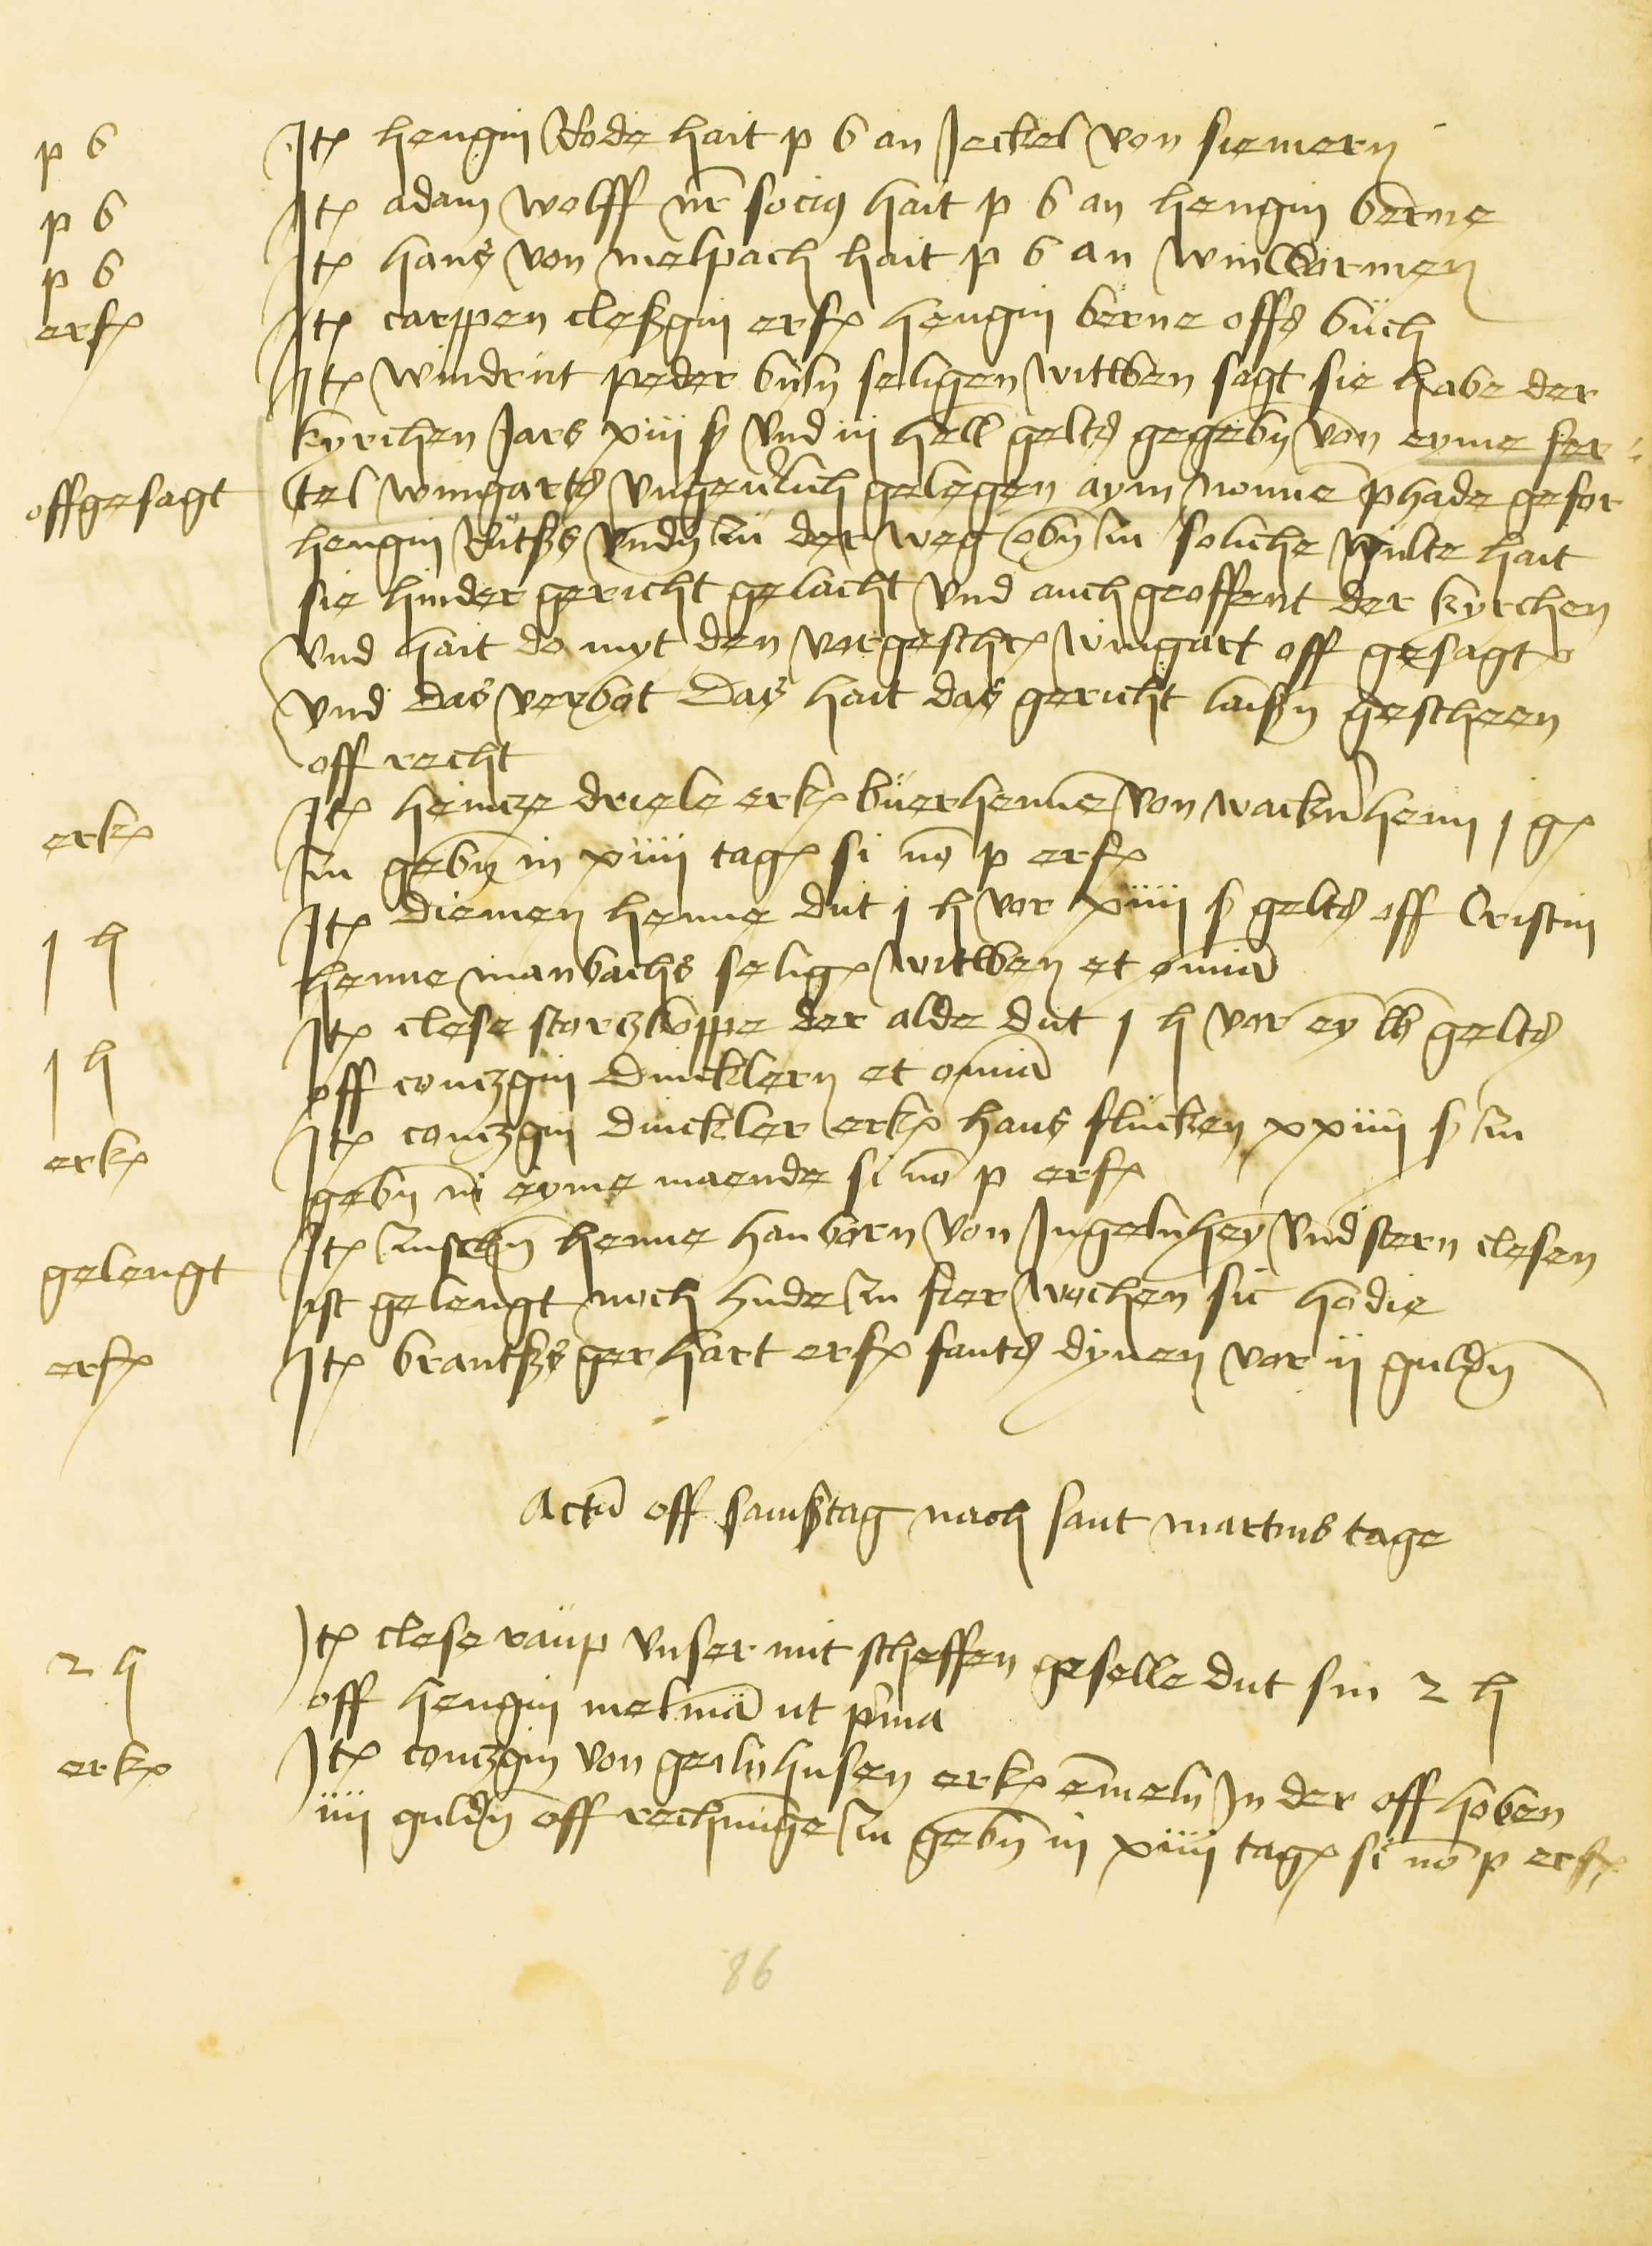 p b Itꝫ hengin Rode hait p b an Jeckel von siemern
p b Itꝫ adam wolff nr̄ socius hait p b an hengin berne
p b Itꝫ hans von melpach hait p b an winwormen
erfꝫ Itꝫ carppen cleßgin erfꝫ hengin berne offs buch
Itꝫ windrut peder buln seligen witwen sagt sie habe der
kyrchen Jars xiiii ß vnd iii hell gelts gegebn̄ von eyme fer
offgesagt tel wingarts vngeuerlich gelegen aym nonne phade gefor
hengin Rutßs vndn̄ zu der weg obn̄ zu soliche gulte hait
sie hinder gericht gelacht vnd auch geoffent der kyrchen
vnd hait do myt den vorgeschrꝫ wingart off gesagt
vnd das verbot Das hait das gericht laißn gescheen
off recht
erkꝫ Itꝫ heincze driele erkꝫ buerhenne von wackernheim j gꝫ
zu gebn̄ in xiiii tagꝫ si nō p erfꝫ
j h Itꝫ Diemen henne dut j h vor xiiii ß gelts off Cristin
henne manbachs seligꝫ witwen et omnia
j h Itꝫ clese storczkoppe der alde dut j h vor ey lb gelts
off conczgin Dincklern et omnia
erkꝫ Itꝫ conczgin dinckler erkꝫ hans flucken xxiiii ß zu
gebn̄ in eyme maende si nō p erfꝫ
gelengt Itꝫ zuschn̄ henne hanborn von Ingelnhey vnd stern clesen
ist gelengt noch hude zu fier wochen sic hodie
erfꝫ Itꝫ brantßs gerhart erfꝫ fauts dynen vor ii guldn̄
Actū off samßtag nach sant martins tage
2 h Itꝫ clese raup vnser mit scheffen geselle dut sin 2 h
off hengin melmā ut p̄ma
erkꝫ Itꝫ conczgin von geilnhusen erkꝫ emeln In der offhoben
iiii guldn̄ off rechnunge zu gebn̄ in xiiii tagꝫ si nō p erfꝫ
86